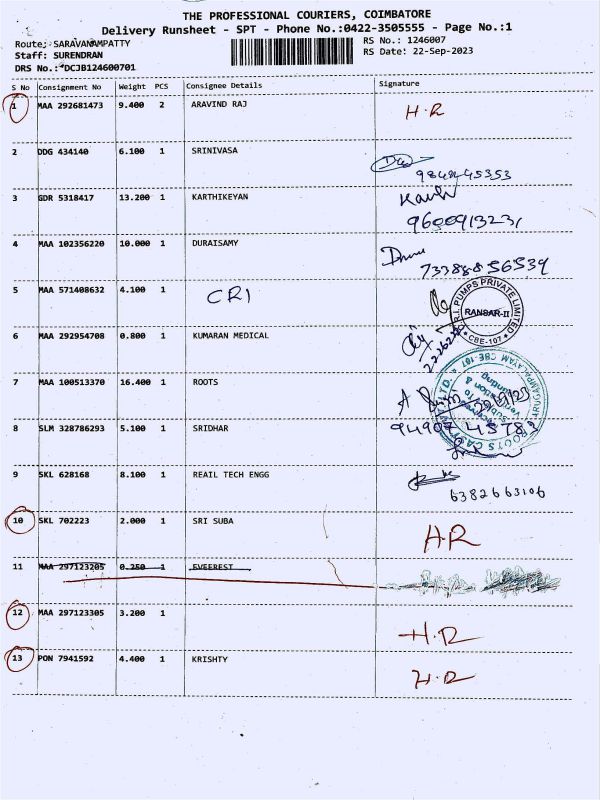 THE PROFESSIONAL COURIERS, COIMBATORE
Delivery Runsheet - SPT - Phone No.:0422-3505555 - Page No.:1
Route: SARAVANAMPATTY RS No.: 1246007
Staff: SURENDRAN RS Date: 22-Sep-2023
DRS No.: DCJB124600701
S No Consignment No Weight PCS Consignee Details Signature
1 MAA 292681473 9.400 2 ARAVIND RAJ H.R
2 DDG 434140 6.100 1 SRINIVASA
3 GDR 5318417 13.200 1 KARTHIKEYAN
9600913231
4 MAA 102356220 10.000 1 DURAISAMY
5 MAA 571408632 4.100 1 CRI
R.I. PUMPS PRIVATE LIMITED
RANSAR-II
CBE-107
6 MAA 292954708 0.800 1 KUMARAN MEDICAL
7 MAA 100513370 16.400 1 ROOTS
8 SLM 328786293 5.100 1 SRIDHAR
9 SKL 628168 8.100 1 REAIL TECH ENGG
6382663106
10 SKL 702223 2.000 1 SRI SUBA HR
11 MAA 297123205 0.250 1 EVEEREST
12 MAA 297123305 3.200 1 H.R
13 PON 7941592 4.400 1 KRISHTY H.R